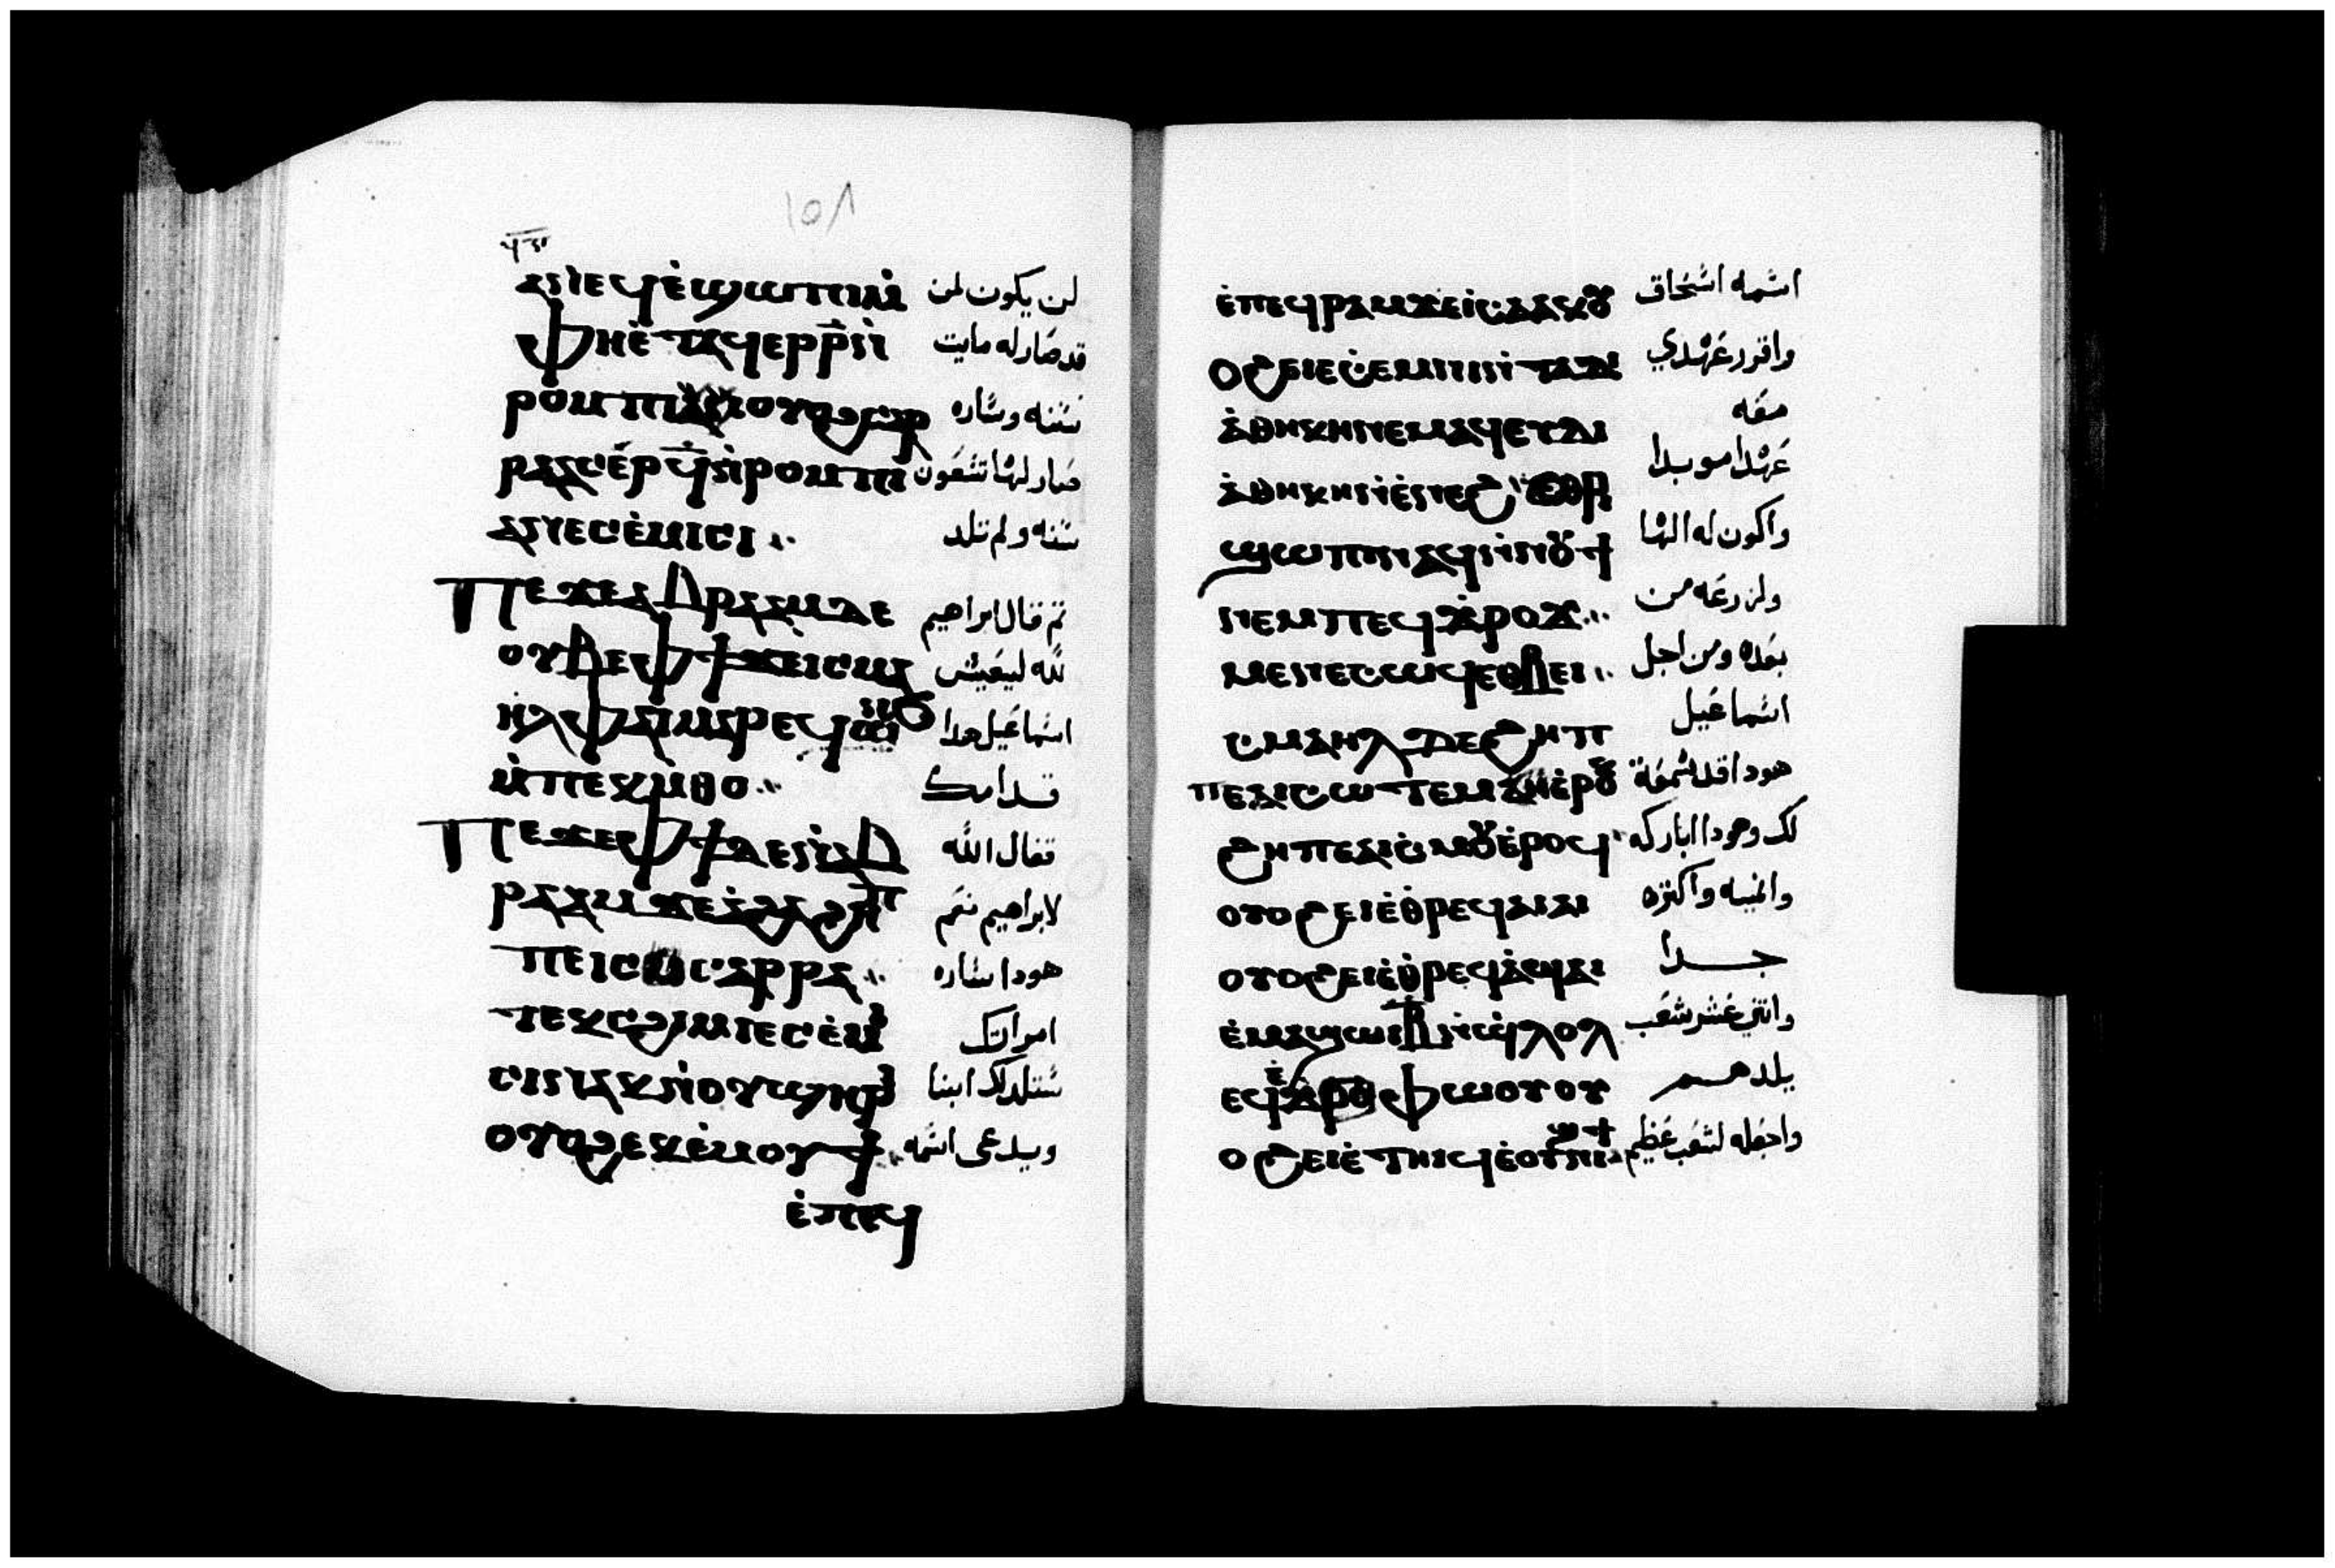 ١٥٨
ⲁⲛⲉϥⲉ̀ϣⲱⲡⲓⲙ̀ لن يكون لمن
ⲫⲏⲉ̀ⲧⲁϥⲉⲣⲣ̅ⲛ̀ قد صار له مايت
ⲣⲟⲙⲡⲓ ⲟⲩⲟϩⲥⲁ سنه وساره
ⲣⲁⲁⲥⲉ̀ⲣϥ̅ⲛ̀ⲣⲟⲙⲡⲓ صار لها تسعون
ⲁⲛⲉⲥⲉ̀ⲙⲓⲥⲓ سنه ولم تلد
ⲡⲉϫⲉⲁⲃⲣⲁⲁⲙⲇⲉ ثم قال ابراهيم
ⲟⲩⲃⲉⲫϯϫⲉⲓⲥⲙⲁ لله ليعيش
ⲏⲗⲫⲁⲓⲙⲁⲣⲉϥⲱⲛϧ اسماعيل هدا
ⲙ̀ⲡⲉⲕⲙ̀ⲑⲟ قدامك
ⲡⲉϫⲉⲫϯⲇⲉⲛ̀ⲁⲃ فقال الله
ⲣⲁⲁⲙϫⲉⲁ̀ϩⲁϩⲏⲡ لابراهيم نعم
ⲡⲉⲓⲥ ⲥⲁⲣⲣⲁ هودا ساره
ⲧⲉⲕⲥϩⲓⲙⲓⲉⲥⲉ̀ⲙⲓ امراتك
ⲥⲓⲛⲁⲕⲛ̀ⲟⲩϣⲏⲣⲓ ستلد لك ابنا
ⲟⲩⲟϩⲉⲕⲉ̀ⲙⲟⲩϯ ويدعى اسمه
ⲉ̀ⲡⲉϥ
ⲉ̀ⲡⲉϥⲣⲁⲛϫⲉⲓ̀ⲥⲁⲁⲕⲟⲩ اسمه اسحاق
ⲟϩⲉⲓⲉ̀ⲥⲉⲙⲛⲓⲛ̀ⲧⲁⲇⲓ واقرر عهدي
ⲁ̀ⲑⲏⲕⲏⲛⲉⲙⲁϥⲉⲩⲇⲓ معه
ⲁ̀ⲑⲏⲕⲏⲛ̀ⲉ̀ⲛⲉϩ ⲉⲑⲣⲓ عهدا موبدا
ϣⲱⲡⲓⲛⲁϥⲛ̀ⲛⲟⲩϯ واكون له الها
ⲛⲉⲙⲡⲉϥϫ̀ⲣⲟϫ ولزرعه من
ⲙⲉⲛⲉⲥⲱϥⲉⲑⲃⲉⲓ بعده ومن اجل
ⲥⲙⲁⲏⲗⲇⲉϩⲏⲡ اسماعيل
ⲡⲉⲁⲓⲥⲱⲧⲉⲙⲉ̀ⲣⲟⲕ هودا قد سمعة
ϩⲏⲡⲡⲉⲁⲓⲥⲙⲟⲩⲉ̀ⲣⲟϥ لك وهودا اباركه
ⲟⲩⲟϩⲉⲓⲉ̀ⲑⲣⲉϥⲁⲓⲁⲓ وانميه واكثره
ⲟⲩⲟϩⲉⲓⲉ̀ⲑⲣⲉϥⲁ̀ϣⲁⲓ جدا
ⲉ̀ⲙⲁϣⲱⲓⲃ̅ⲛ̀ϣ̀ⲗⲟⲗ واتني عشر شعب
ⲉϥⲉ̀ϫ̀ⲫⲱⲟⲩⲟⲩ يلدهم
ⲟϩⲉⲓⲉ̀ⲧⲏⲓϥⲉⲟⲩⲛⲓϣϯ واجعله لشعب عظيم